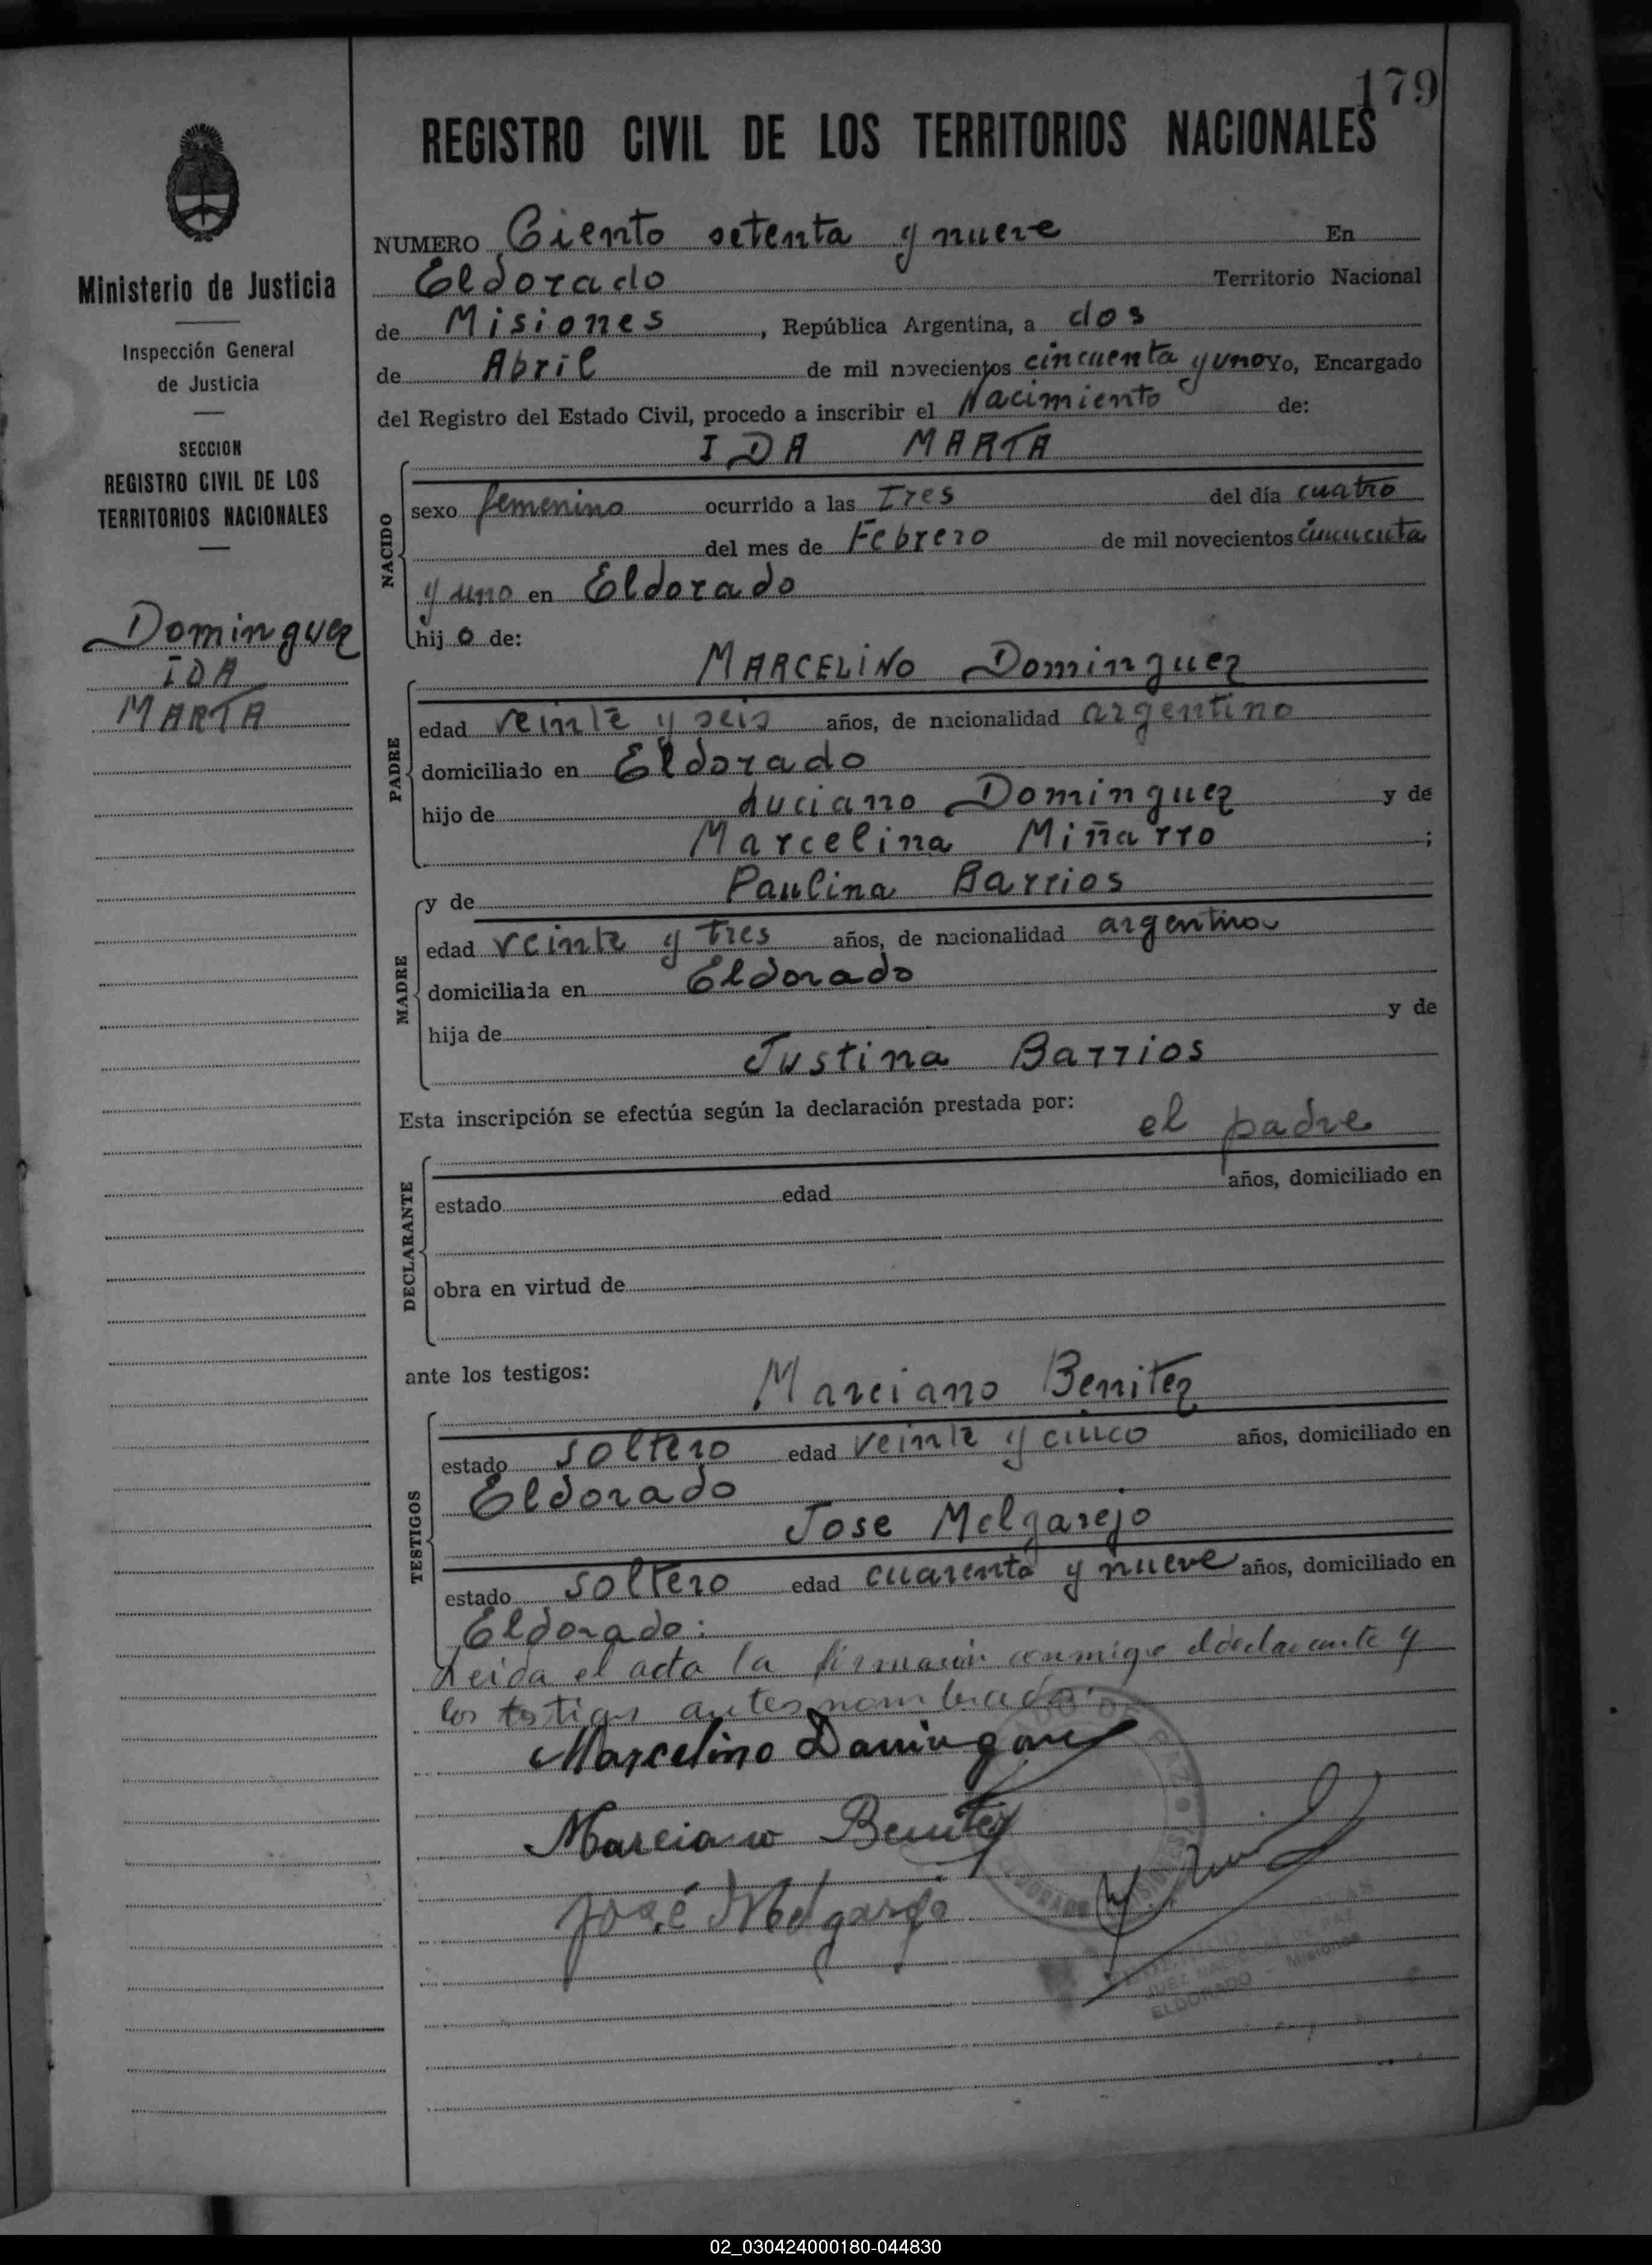 179
REGISTRO CIVIL DE LOS TERRITORIOS NACIONALES
Ministerio de Justicia
Inspección General
de Justicia
SECCION
REGISTRO CIVIL DE LOS
TERRITORIOS NACIONALES
Dominguez
IDA
MARTA
NUMERO Ciento setenta y nueve En
Eldorado Territorio Nacional
de Misiones, República Argentina, a dos
de Abril de mil novecientos cincuenta y uno Yo, Encargado
del Registro del Estado Civil, procedo a inscribir el Nacimiento de:
NACIDO
IDA MARTA
sexo femenino ocurrido a las Tres del día cuatro
del mes de Febrero de mil novecientos cincuenta
y uno en Eldorado
hij o de:
PADRE
MARCELINO Dominguez
edad veinte y seis años, de nacionalidad argentino
domiciliado en Eldorado
hijo de Luciano Dominguez y de
Marcelina Miñarro ;
MADRE
y de Paulina Barrios
edad veinte y tres años, de nacionalidad argentina
domiciliada en Eldorado
hija de y de
Justina Barrios
Esta inscripción se efectúa según la declaración prestada por:
el padre
DECLARANTE
estado edad años, domiciliado en
obra en virtud de
ante los testigos:
TESTIGOS
Marciano Benitez
estado soltero edad veinte y cinco años, domiciliado en
Eldorado
Jose Melgarejo
estado soltero edad cuarenta y nueve años, domiciliado en
Eldorado:
Leida el acta la firmaron conmigo el declarante y
los testigos antes nombrados.
Marcelino Daminguez
Marciano Benitez
José Melgarejo
JUEZ NACIONAL DE PAZ
ELDORADO - Misiones
02_030424000180-044830